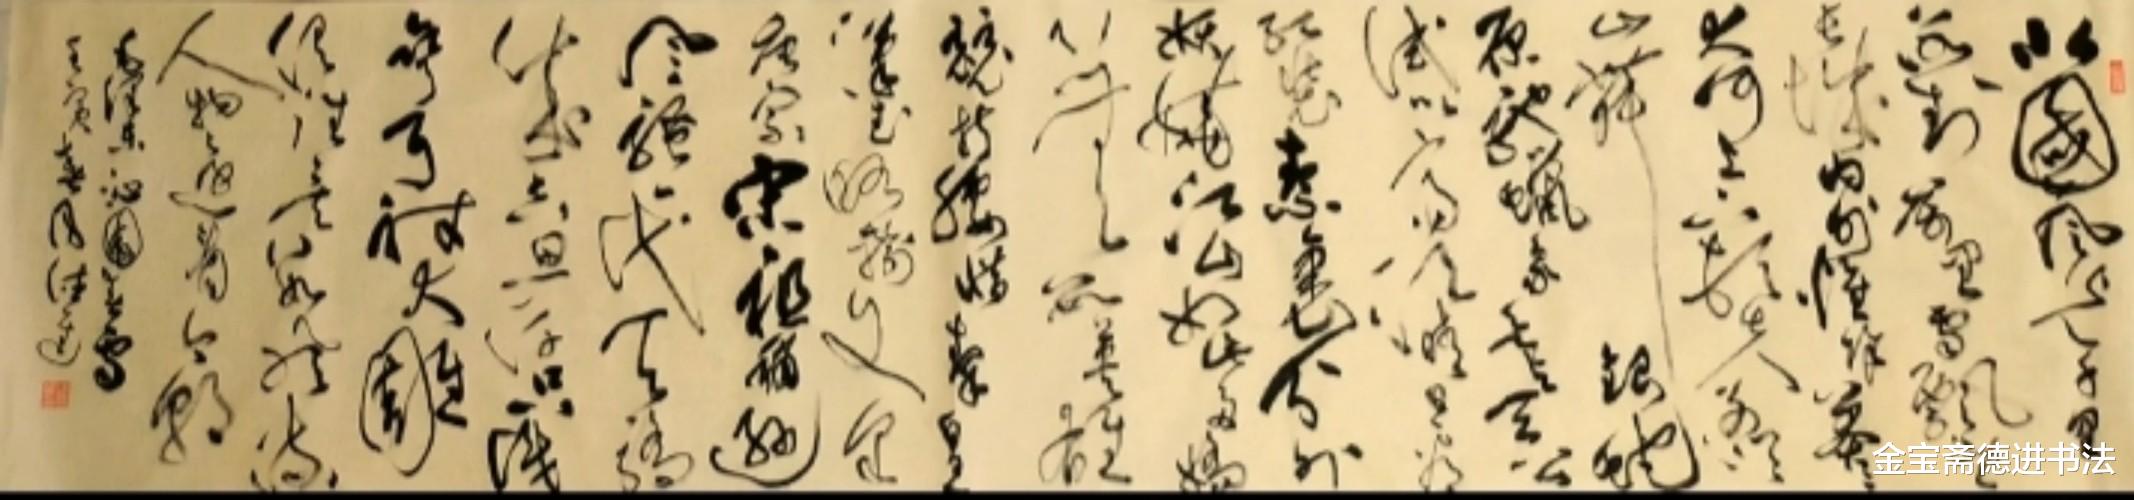 北国风光千里
冰封万里雪飘
长城内外惟余莽
大河上下顿失滔
山舞银蛇
原驰蜡象欲与天公
试比高须晴日看
红装素裹分外
妖娆江山如此多娇
引无数英雄
竞折腰惜秦皇
汉武略输文采
唐宗宋祖稍逊
风骚一代天骄
成吉思汗只识
弯弓射大雕
俱往矣数风流
人物还看今朝
毛泽东沁园春雪
壬寅春月德进
金宝斋德进书法